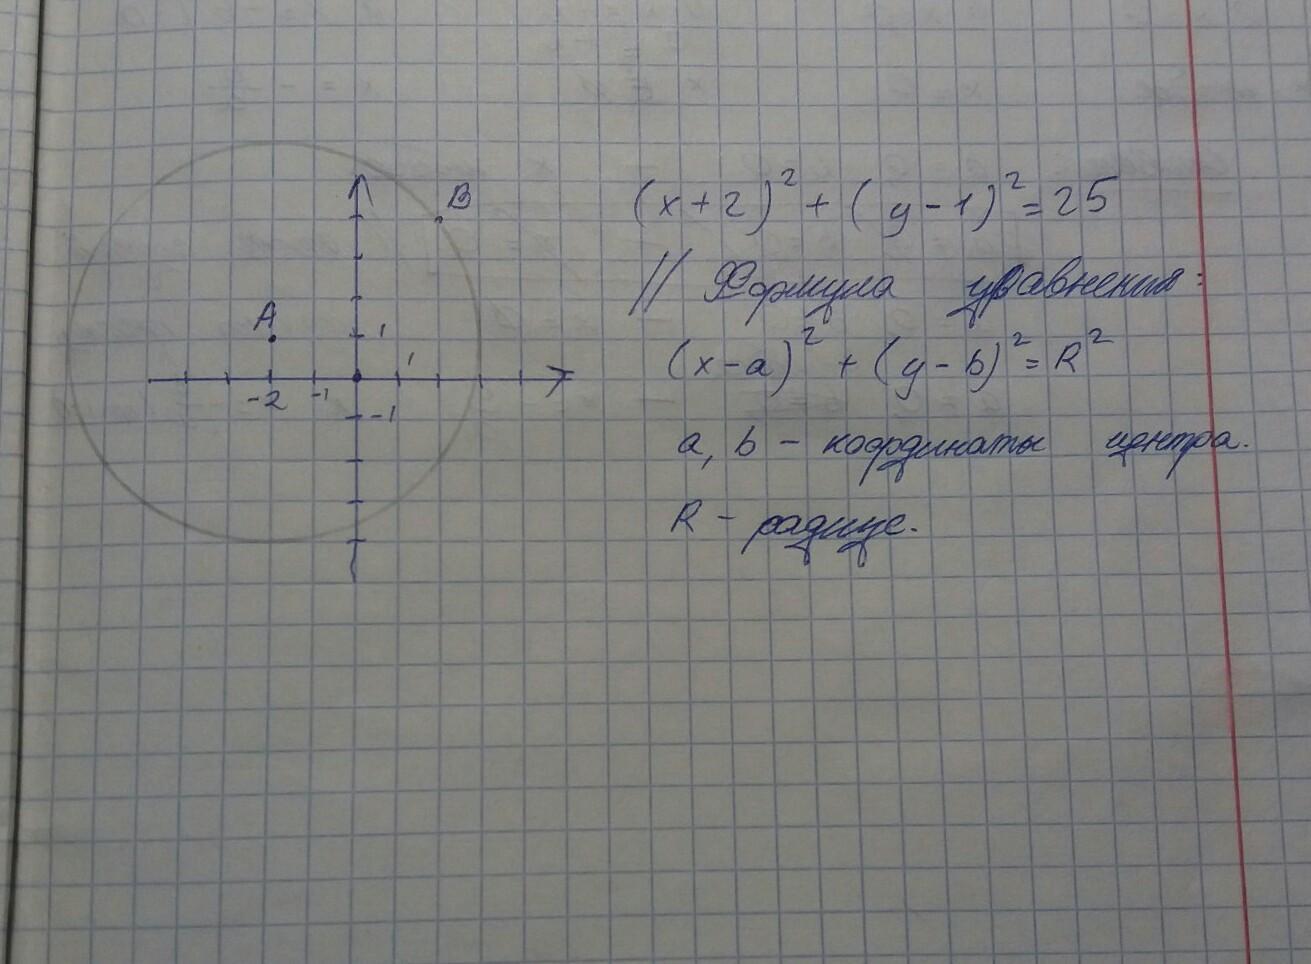 B
(x+2)² + (y-1)² = 25
// Формула уравнения:
A
1
(x-a)² + (y-b)² = R²
1
-2 -1
-1
a, b - координаты центра.
R - радиус.